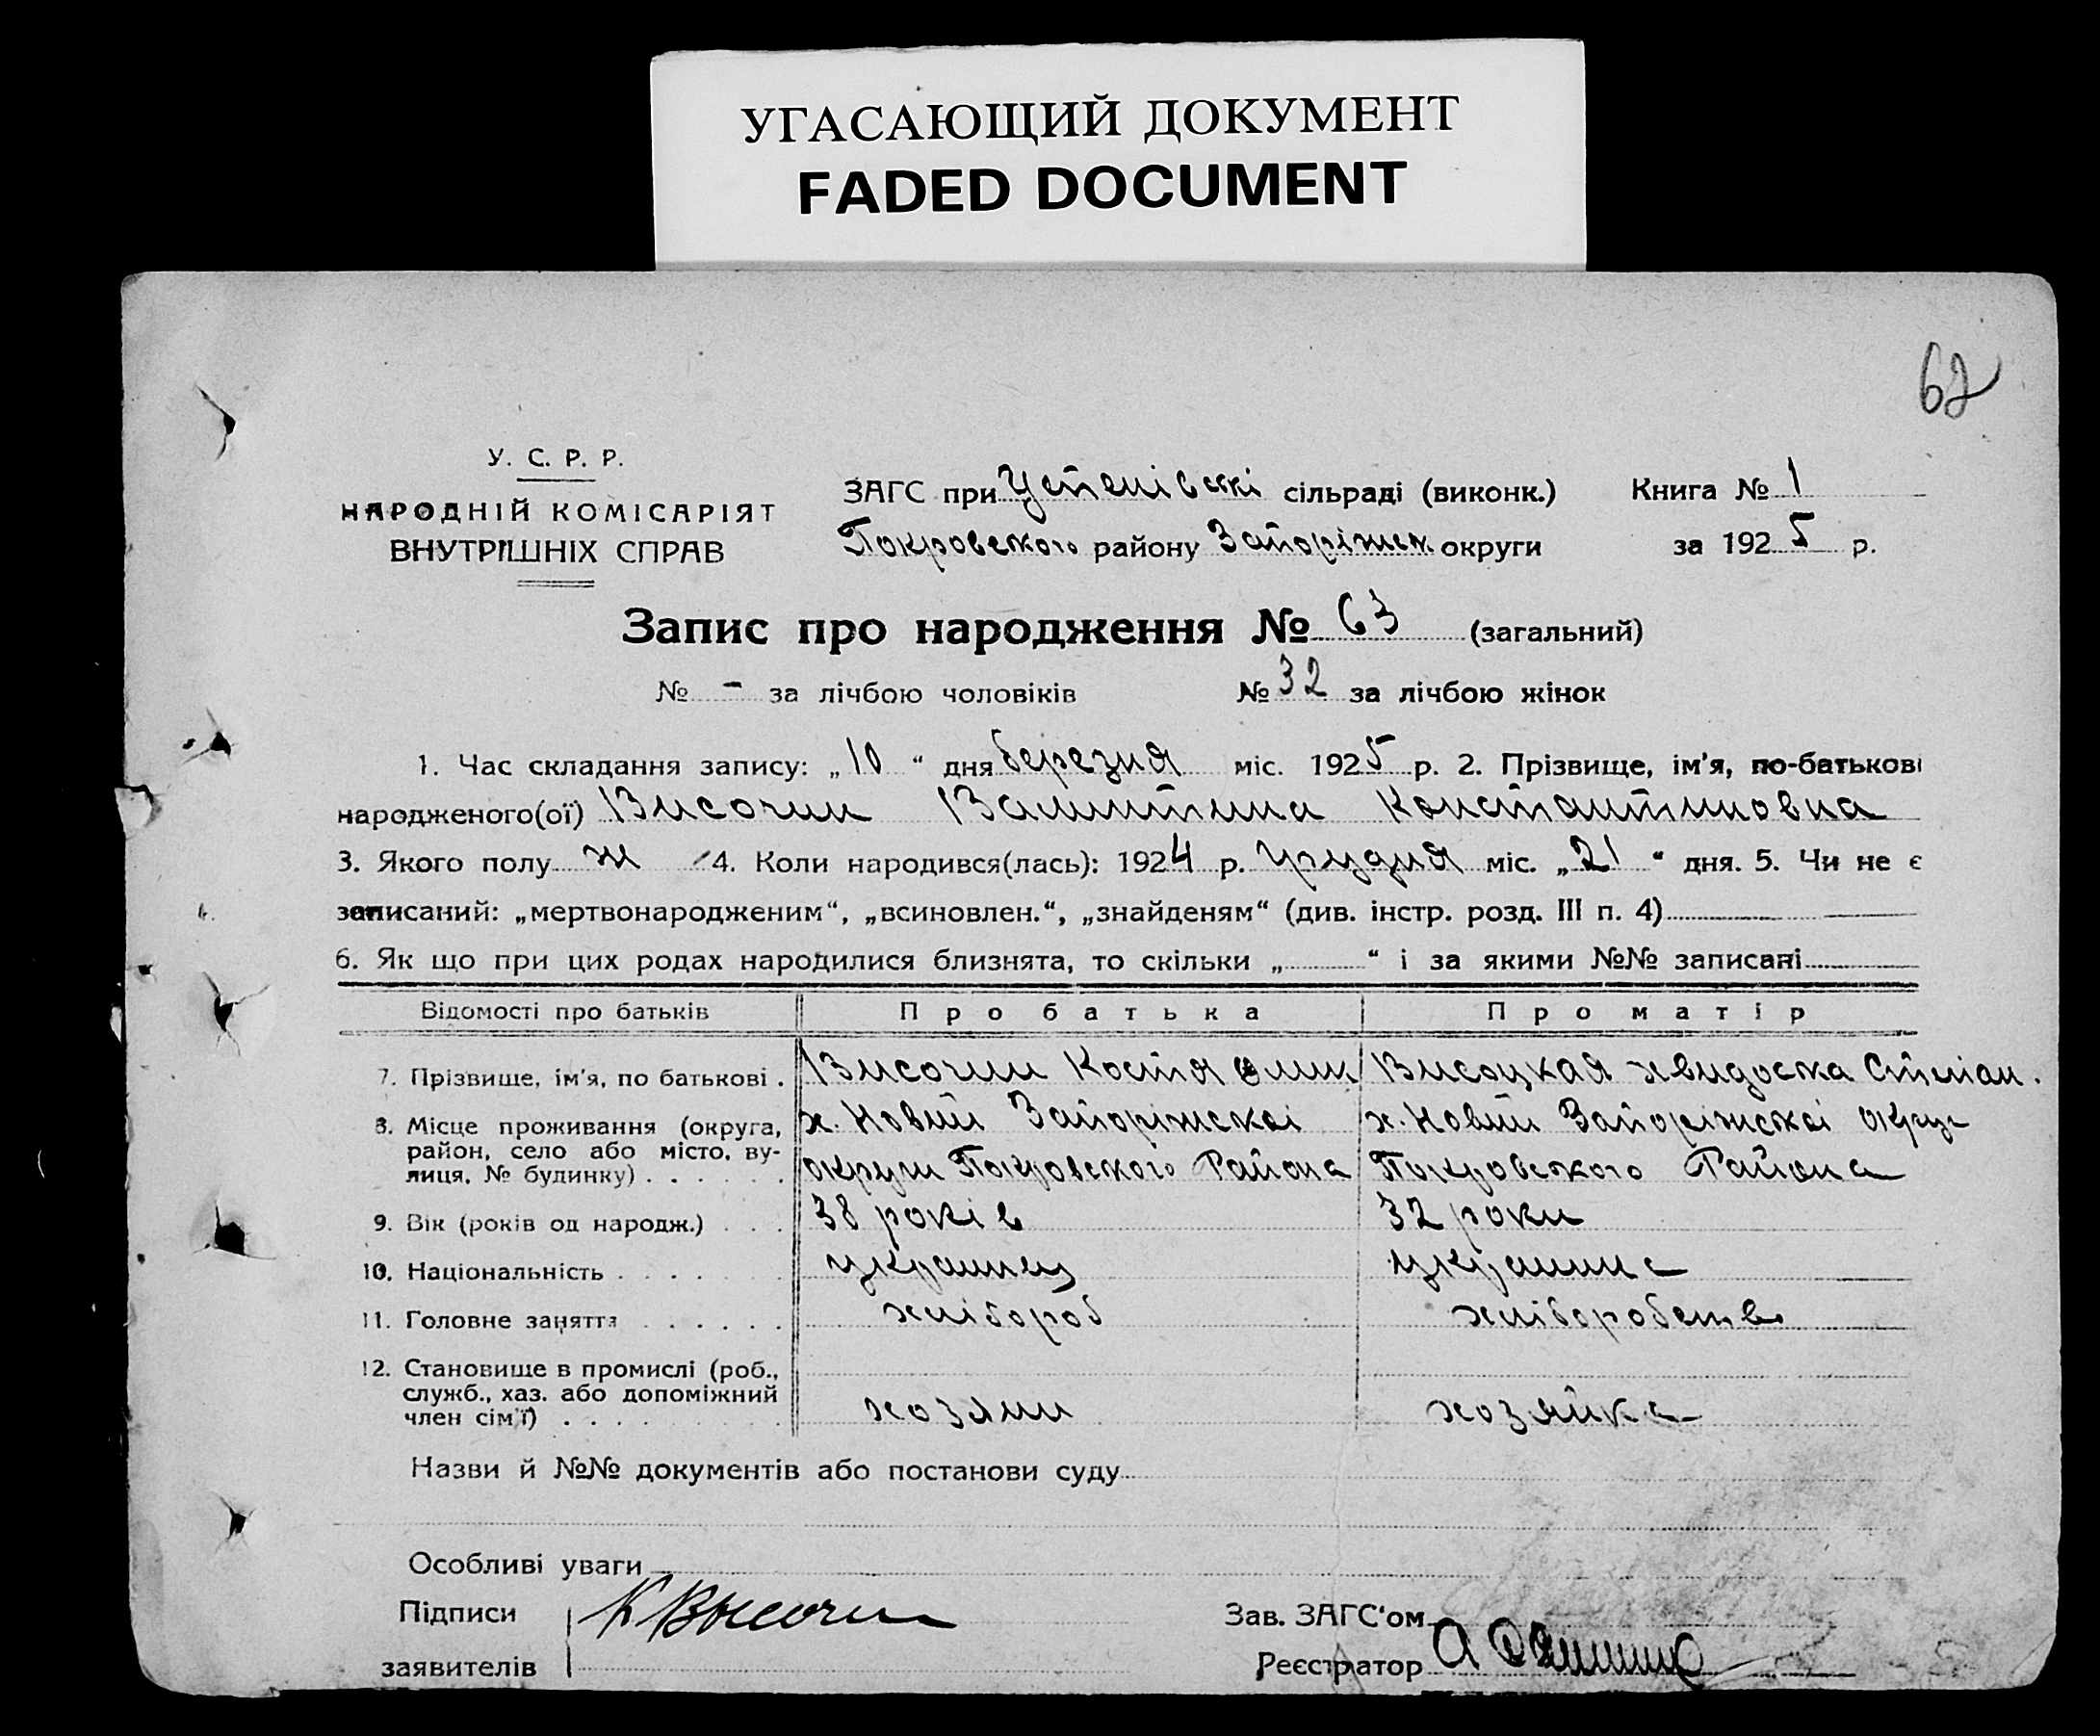 УГАСАЮЩИЙ ДОКУМЕНТ
FADED DOCUMENT
62
У. С. Р. Р.
НАРОДНІЙ КОМІСАРІЯТ
ВНУТРІШНІХ СПРАВ
ЗАГС при Успенівскі сільраді (виконк.)
Покровского району Запоріжск округи
Книга № 1
за 1925 р.
Запис про народження № 63 (загальний)
№ - за лічбою чоловіків № 32 за лічбою жінок
1. Час складання запису: „10“ дня березня міс. 1925 р. 2. Прізвище, ім'я, по-батькові
народженого(ої) Височин Валинтина Константиновна
3. Якого полу ж 4. Коли народився(лась): 1924 р. грудня міс. „21“ дня. 5. Чи не є
записаний: „мертвонародженим“, „всиновлен.“, „знайденям“ (див. інстр. розд. III п. 4)
6. Як що при цих родах народилися близнята, то скільки „ “ і за якими №№ записані
Відомості про батьків Про батька Про матір
7. Прізвище, ім'я, по батькові . Височин Костя Височкая Степан.
8. Місце проживання (округа, х. Новий Запоріжскоі х. Новий Запоріжскоі округ
район, село або місто, ву- округи Покровского Района Покровского Района
лиця, № будинку) . . . . . .
9. Вік (років од народж.) . . . 38 років 32 роки
10. Національність . . . . . . . українец українка
11. Головне заняття . . . . . . хлібороб хліборобств
12. Становище в промислі (роб.,
служб., хаз. або допоміжний хозяин хозяйка
член сім'ї) . . . . . . . . .
Назви й №№ документів або постанови суду
Особливі уваги
Підписи К Высочин Зав. ЗАГС'ом
заявителів Реєстратор